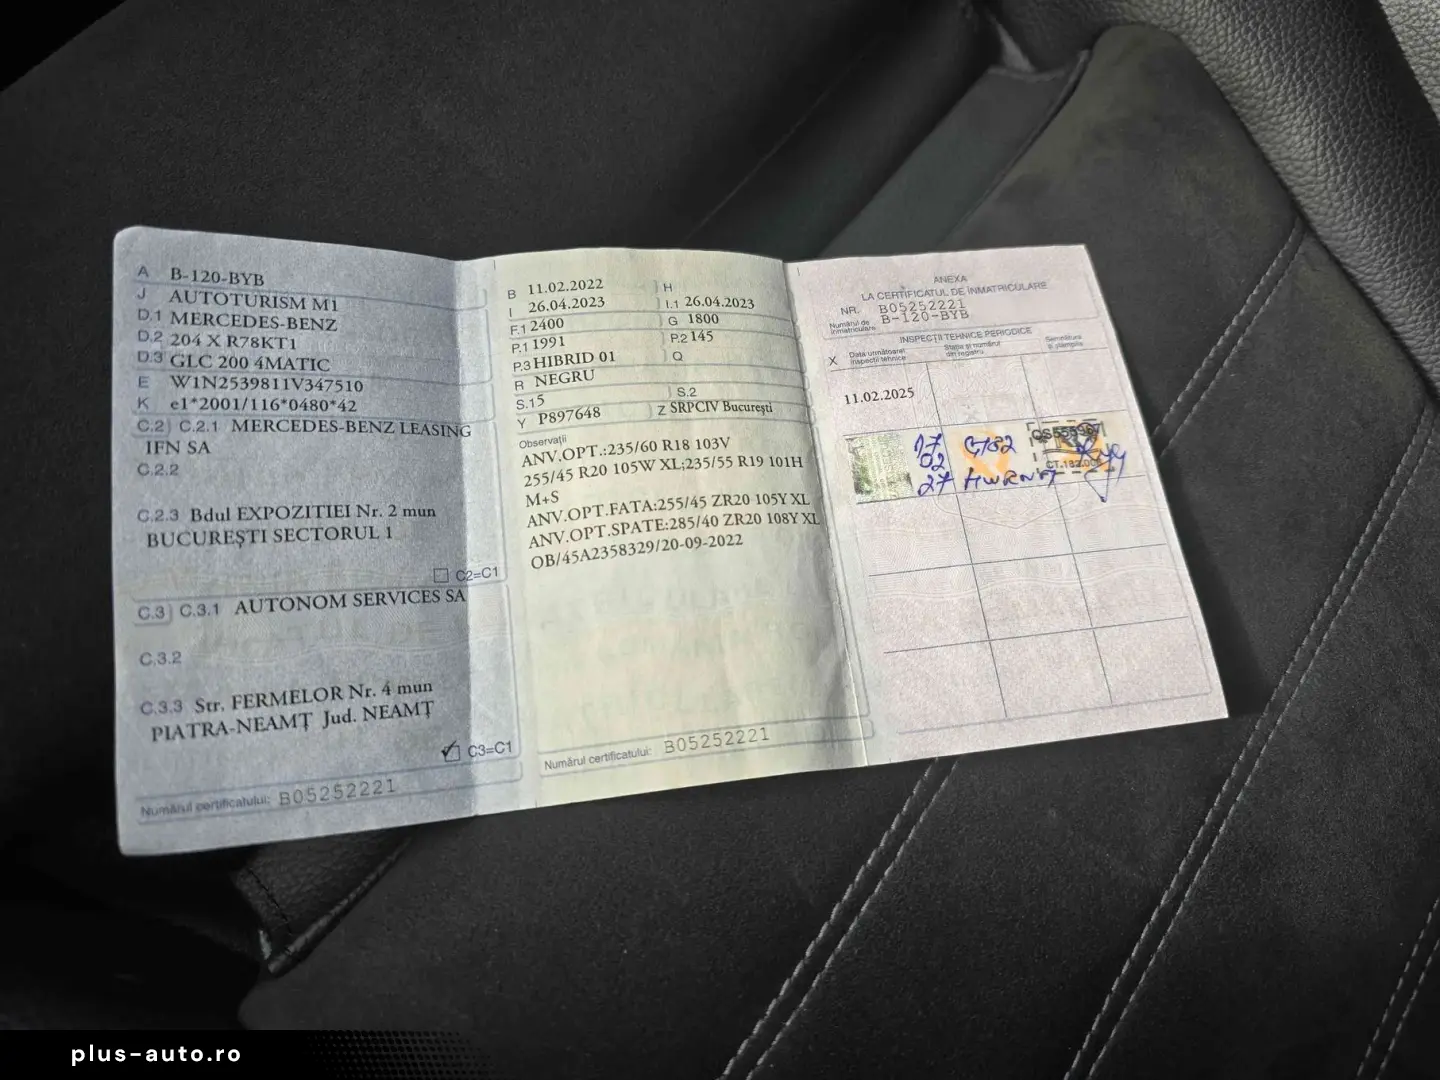 A B-120-BYB
J AUTOTURISM M1
D.1 MERCEDES-BENZ
D.2 204 X R78KT1
D.3 GLC 200 4MATIC
E W1N2539811V347510
K e1*2001/116*0480*42
C.2) C.2.1 MERCEDES-BENZ LEASING
IFN SA
C.2.2
C.2.3 Bdul EXPOZITIEI Nr. 2 mun
BUCUREȘTI SECTORUL 1
C2=C1
C.3) C.3.1 AUTONOM SERVICES SA
C.3.2
C.3.3 Str. FERMELOR Nr. 4 mun
PIATRA-NEAMȚ Jud. NEAMȚ
C3=C1
Numărul certificatului: B05252221
B 11.02.2022 H
I 26.04.2023 I.1 26.04.2023
F.1 2400 G 1800
P.1 1991 P.2 145
P.3 HIBRID 01 Q
R NEGRU
S.1 5 S.2
Y P897648 Z SRPCIV București
Observații
ANV.OPT.:235/60 R18 103V
255/45 R20 105W XL;235/55 R19 101H
M+S
ANV.OPT.FATA:255/45 ZR20 105Y XL
ANV.OPT.SPATE:285/40 ZR20 108Y XL
OB/45A2358329/20-09-2022
Numărul certificatului: B05252221
ANEXA
LA CERTIFICATUL DE ÎNMATRICULARE
NR. B05252221
Numărul de înmatriculare B-120-BYB
INSPECȚII TEHNICE PERIODICE
X Data următoarei inspecții tehnice Stația și numărul din registru Semnătura și ștampila
11.02.2025
17
02
27
plus-auto.ro